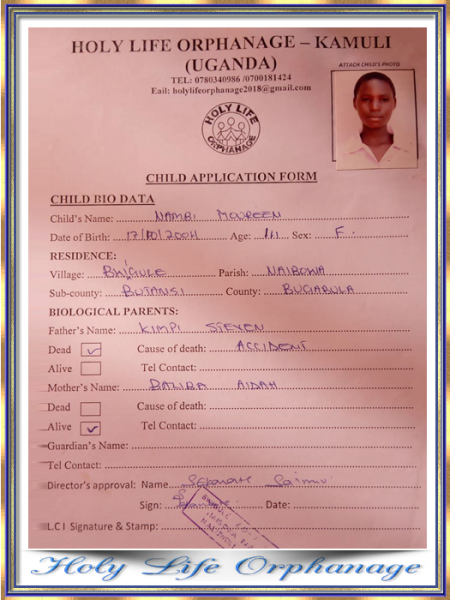 HOLY LIFE ORPHANAGE – KAMULI
(UGANDA)
TEL: 0780340986 /0700181424
Eail: holylifeorphanage2018@gmail.com
ATTACH CHILD'S PHOTO
HOLY LIFE
ORPHANAGE
CHILD APPLICATION FORM
CHILD BIO DATA
Child's Name: NAMBI MOUREEN
Date of Birth: 17/10/2004 Age: Sex: F.
RESIDENCE:
Village: BWIGULE Parish: NAIBOWA
Sub-county: BUTANSI County: BUGABULA
BIOLOGICAL PARENTS:
Father's Name: KIMPI STEVEN
Dead ✓ Cause of death: ACCIDENT
Alive Tel Contact:
Mother's Name: BALIBA AIDAH
Dead Cause of death:
Alive ✓ Tel Contact:
Guardian's Name:
Tel Contact:
Director's approval: Name
Sign: Date:
L.C I Signature & Stamp:
Holy Life Orphanage